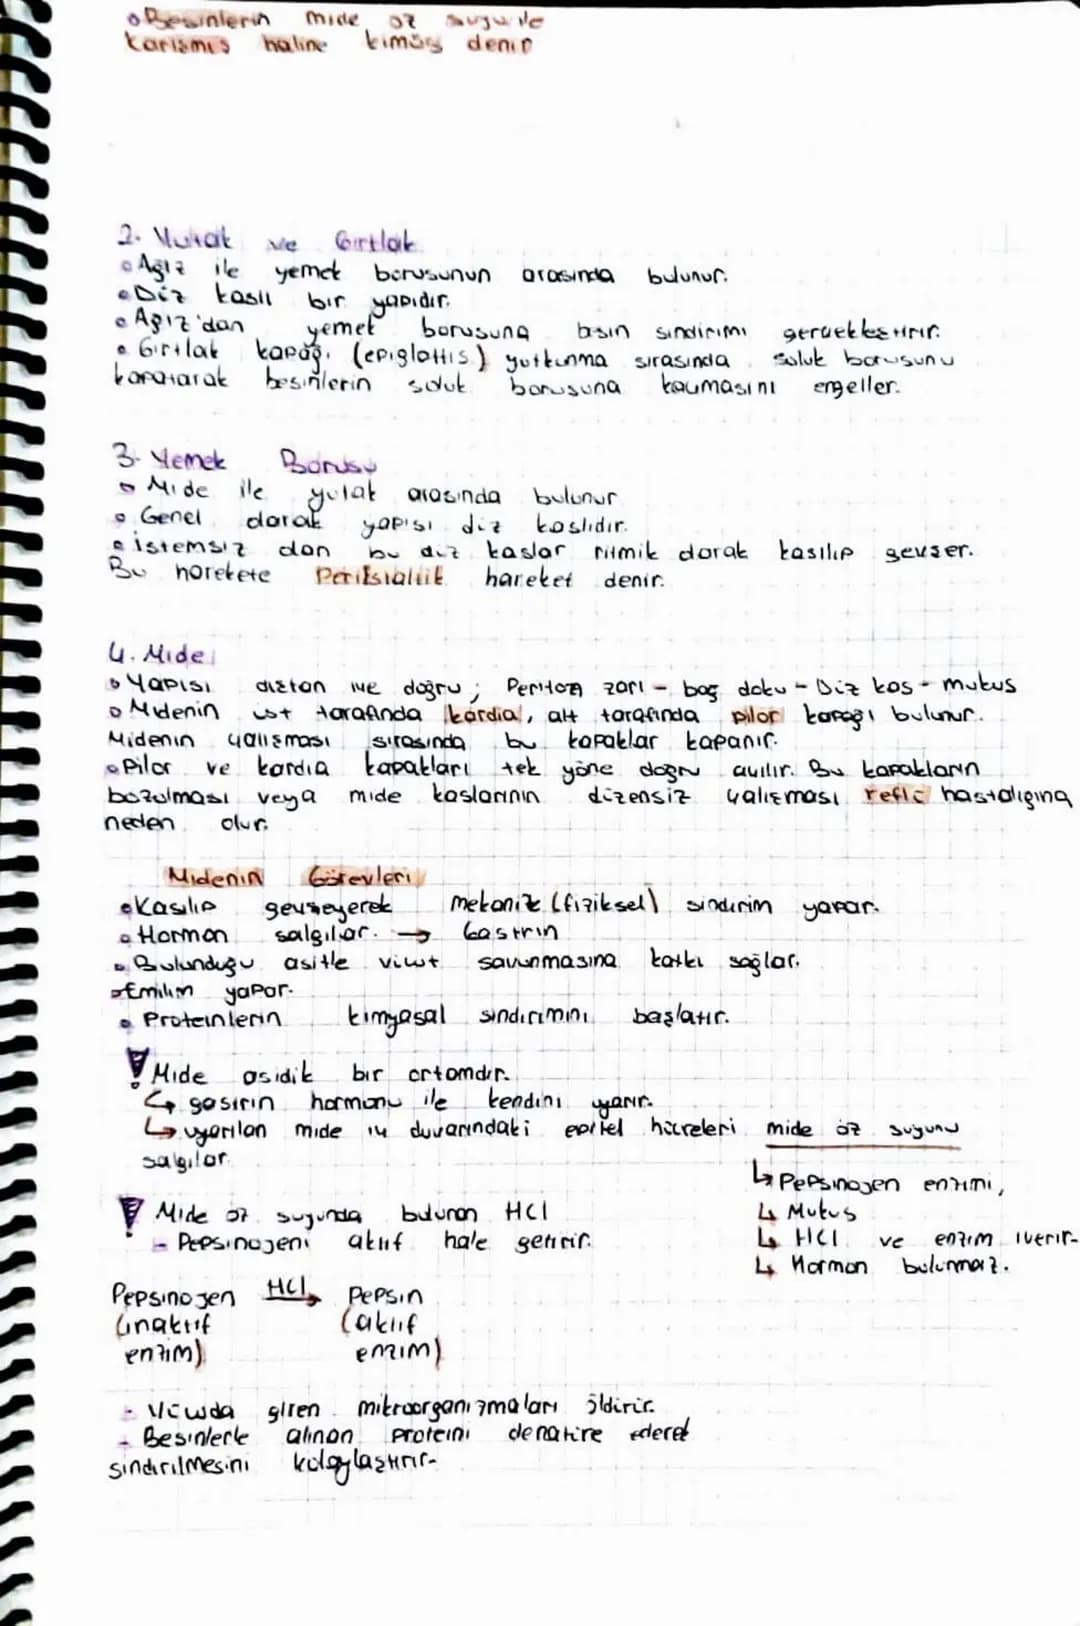 • Besinlerin mide öz suyu ile
karışmış haline kimüs denir
2. Yutak ve Gırtlak
• Ağız ile yemek borusunun arasında bulunur.
• Düz kaslı bir yapıdır.
• Ağız'dan yemek borusuna besin sindirimi gerçekleştirir.
• Gırtlak kapağı (epiglottis) yutkunma sırasında soluk borusunu
kapatarak besinlerin soluk borusuna kaçmasını engeller.
3. Yemek Borusu
• Mide ile yutak arasında bulunur
• Genel olarak yapısı düz kaslıdır.
• İstemsiz olan bu düz kaslar ritmik olarak kasılıp gevşer.
Bu harekete Periksialtik hareket denir.
4. Mide
• Yapısı dıştan içe doğru; Periton zarı - bağ doku - Düz kas - mukus
• Midenin üst tarafında kardia, alt tarafında pilor kapağı bulunur.
Midenin çalışması sırasında bu kapaklar kapanır.
• Pilor ve kardia kapakları tek yöne doğru açılır. Bu kapakların
bozulması veya mide kaslarının düzensiz çalışması reflü hastalığına
neden olur.
Midenin Görevleri
• Kasılıp gevşeyerek mekanik (fiziksel) sindirim yapar.
• Hormon salgılar. → Gastrin
• Bulunduğu asitle vücut savunmasına katkı sağlar.
• Emilim yapar.
• Proteinlerin kimyasal sindirimini başlatır.
! Mide asidik bir ortamdır.
↳ gasırin hormonu ile kendini uyarır.
↳ uyarılan mide iç duvarındaki epitel hücreleri mide öz suyunu
salgılar.
↳ Pepsinojen enzimi,
↳ Mukus
↳ HCl ve enzim içerir.
↳ Hormon bulunmaz.
! Mide öz suyunda bulunan HCl
- Pepsinojeni aktif hale getirir.
Pepsinojen HCl→ Pepsin
(inaktif (aktif
enzim) enzim)
- Vücuda giren mikroorganizmaları öldürür.
- Besinlerle alınan proteini denatüre ederek
sindirilmesini kolaylaştırır.